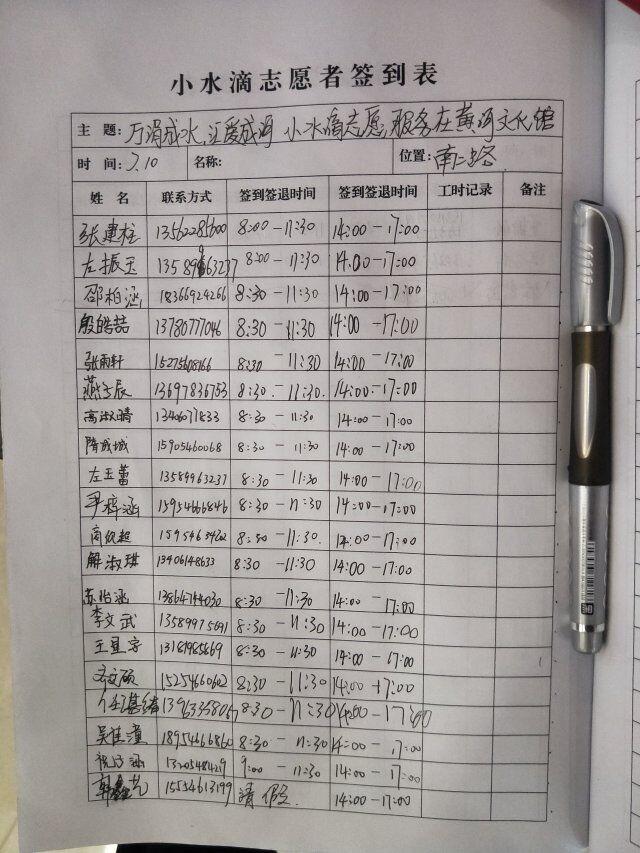 小水滴志愿者签到表
主 题: 万涓成水,汇爱成河 小水滴志愿服务在黄河文化馆
时 间: 7.10 名称: 位置: 南二路
姓 名 联系方式 签到签退时间 签到签退时间 工时记录 备注
张建柱 13562285600 8:00-11:30 14:00-17:00
左振玉 13589963237 8:00-11:30 14:00-17:00
邵柏涵 18366924266 8:30-11:30 14:00-17:00
殷皓喆 13780777046 8:30-11:30 14:00-17:00
张雨轩 15275608166 8:30-11:30 14:00-17:00
燕子辰 13697836753 8:30-11:30 14:00-17:00
高淑晴 13406071833 8:30-11:30 14:00-17:00
隋成城 15905460068 8:30-11:30 14:00-17:00
左玉蕾 13589963237 8:30-11:30 14:00-17:00
尹梓涵 15954666846 8:30-11:30 14:00-17:00
8:30-11:30 14:00-17:00
解淑琪 13406148633 8:30-11:30 14:00-17:00
苏怡涵 13864744030 8:30-11:30 14:00-17:00
李文武 13589975691 8:30-11:30 14:00-17:00
王星宇 13181985869 8:30-11:30 14:00-17:00
15254660602 8:30-11:30 14:00-17:00
8:30-11:30 14:00-17:00
吴佳潼 18954666860 8:30-11:30 14:00-17:00
13205484219 9:00-11:30 14:00-17:00
郭鑫艺 15554613199 请假 14:00-17:00